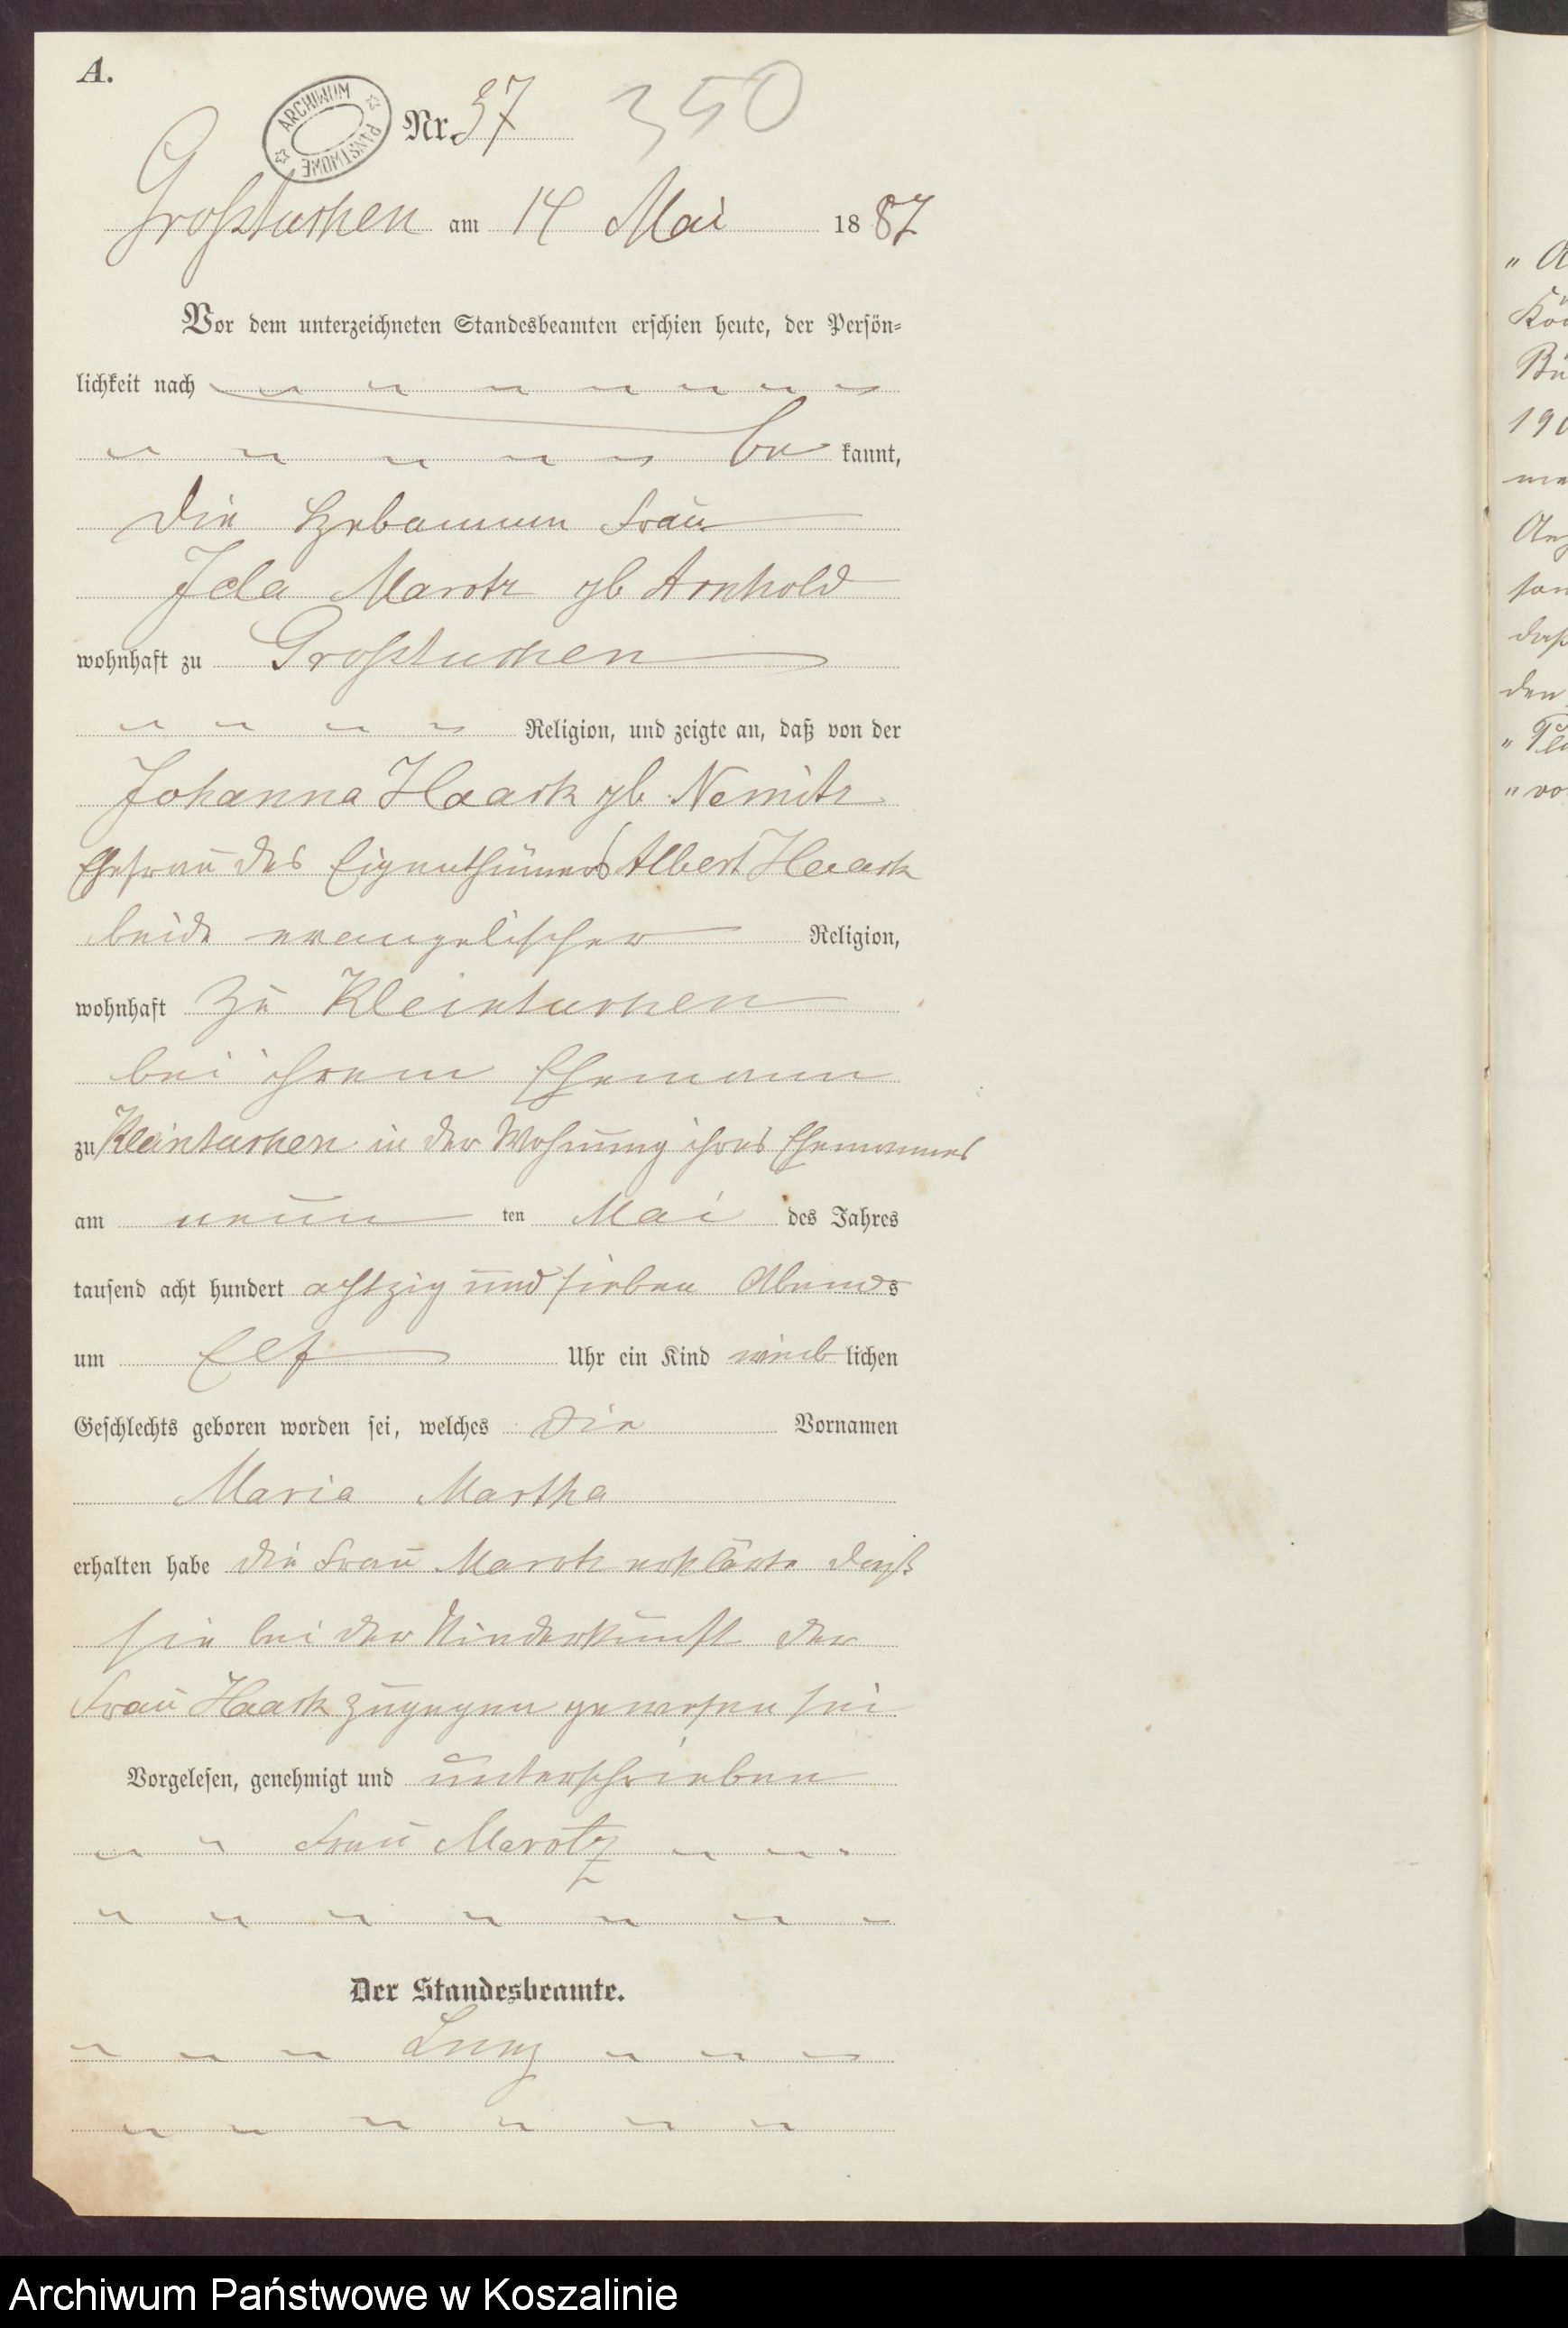 A.
ARCHIWUM PAŃSTWOWE
Nr. 37 350
Großtuchen am 14 Mai 1887
Vor dem unterzeichneten Standesbeamten erschien heute, der Persön-
lichkeit nach
be kannt,
die Hebamme Frau
Ida Marotz gb Arnhold
wohnhaft zu Großtuchen
Religion, und zeigte an, daß von der
Johanna Haack gb Nemitz
Ehefrau des Eigenthümers Albert Haack
beide evangelischer Religion,
wohnhaft zu Kleintuchen
bei ihrem Ehemann
zu Kleintuchen in der Wohnung ihres Ehemannes
am neun ten Mai des Jahres
tausend acht hundert achtzig und sieben Abends
um Elf Uhr ein Kind weib lichen
Geschlechts geboren worden sei, welches die Vornamen
Maria Martha
erhalten habe die Frau Marotz erklärte daß
sie bei der Niederkunft der
Frau Haack zugegen gewesen sei
Vorgelesen, genehmigt und unterschrieben
Frau Marotz
Der Standesbeamte.
Archiwum Państwowe w Koszalinie